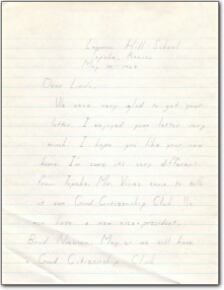 Hill School
Topeka, Kansas
May
Dear
We were very glad to get your
letter. I enjoyed your letter very
much. I hope you like your new
home. I'm sure its very different
from Topeka. Mr. came to talk
at our Good Citizenship Club. We
now have a new vice-president,
Brad May we will have
a Good Citizenship Club